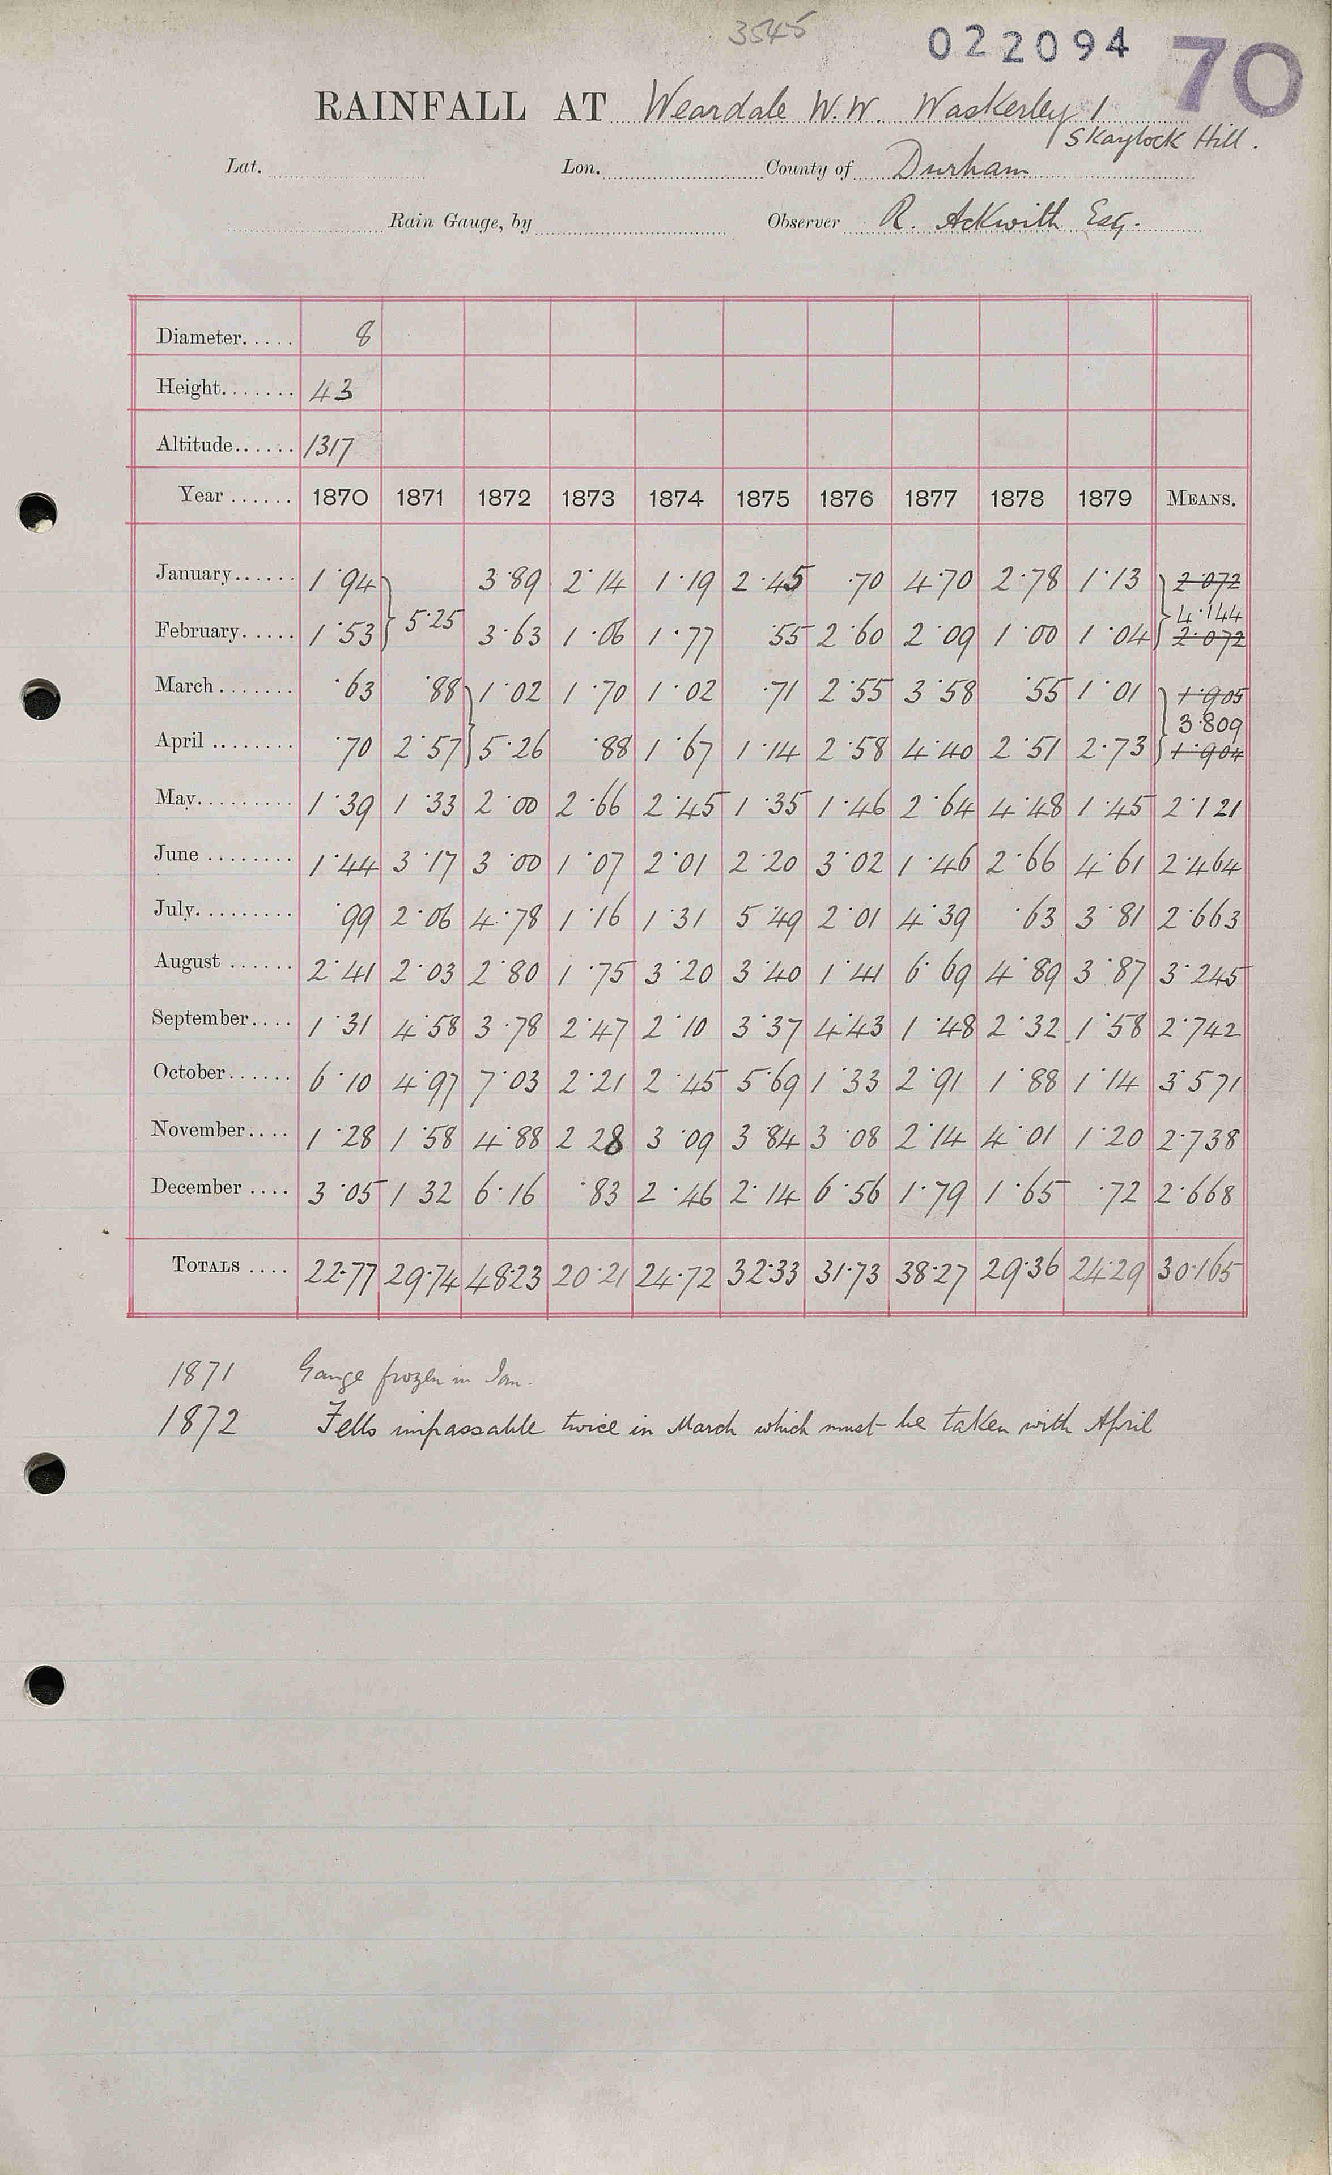 3545
022094 70
RAINFALL AT Weardale W.W. Waskerley 1
Skaylock Hill.
Lat. Lon. County of Durham
Rain Gauge, by Observer R. Ackwith Esq.
Diameter..... 8
Height....... 43
Altitude...... 1317
Year ...... 1870 1871 1872 1873 1874 1875 1876 1877 1878 1879 MEANS.
January...... 1.94 3.89 2.14 1.19 2.45 .70 4.70 2.78 1.13 2.072
5.25 4.144
February..... 1.53 3.63 1.06 1.77 .55 2.60 2.09 1.00 1.04 2.072
March....... .63 .88 1.02 1.70 1.02 .71 2.55 3.58 .55 1.01 1.905
3.809
April ........ .70 2.57 5.26 .88 1.67 1.14 2.58 4.40 2.51 2.73 1.904
May......... 1.39 1.33 2.00 2.66 2.45 1.35 1.46 2.64 4.48 1.45 2.121
June ........ 1.44 3.17 3.00 1.07 2.01 2.20 3.02 1.46 2.66 4.61 2.464
July......... .99 2.06 4.78 1.16 1.31 5.49 2.01 4.39 .63 3.81 2.663
August ...... 2.41 2.03 2.80 1.75 3.20 3.40 1.41 6.69 4.89 3.87 3.245
September.... 1.31 4.58 3.78 2.47 2.10 3.37 4.43 1.48 2.32 1.58 2.742
October...... 6.10 4.97 7.03 2.21 2.45 5.69 1.33 2.91 1.88 1.14 3.571
November.... 1.28 1.58 4.88 2.28 3.09 3.84 3.08 2.14 4.01 1.20 2.738
December .... 3.05 1.32 6.16 .83 2.46 2.14 6.56 1.79 1.65 .72 2.668
TOTALS .... 22.77 29.74 48.23 20.21 24.72 32.33 31.73 38.27 29.36 24.29 30.165
1871 Gauge frozen in Jan.
1872 Fells impassable twice in March which must be taken with April